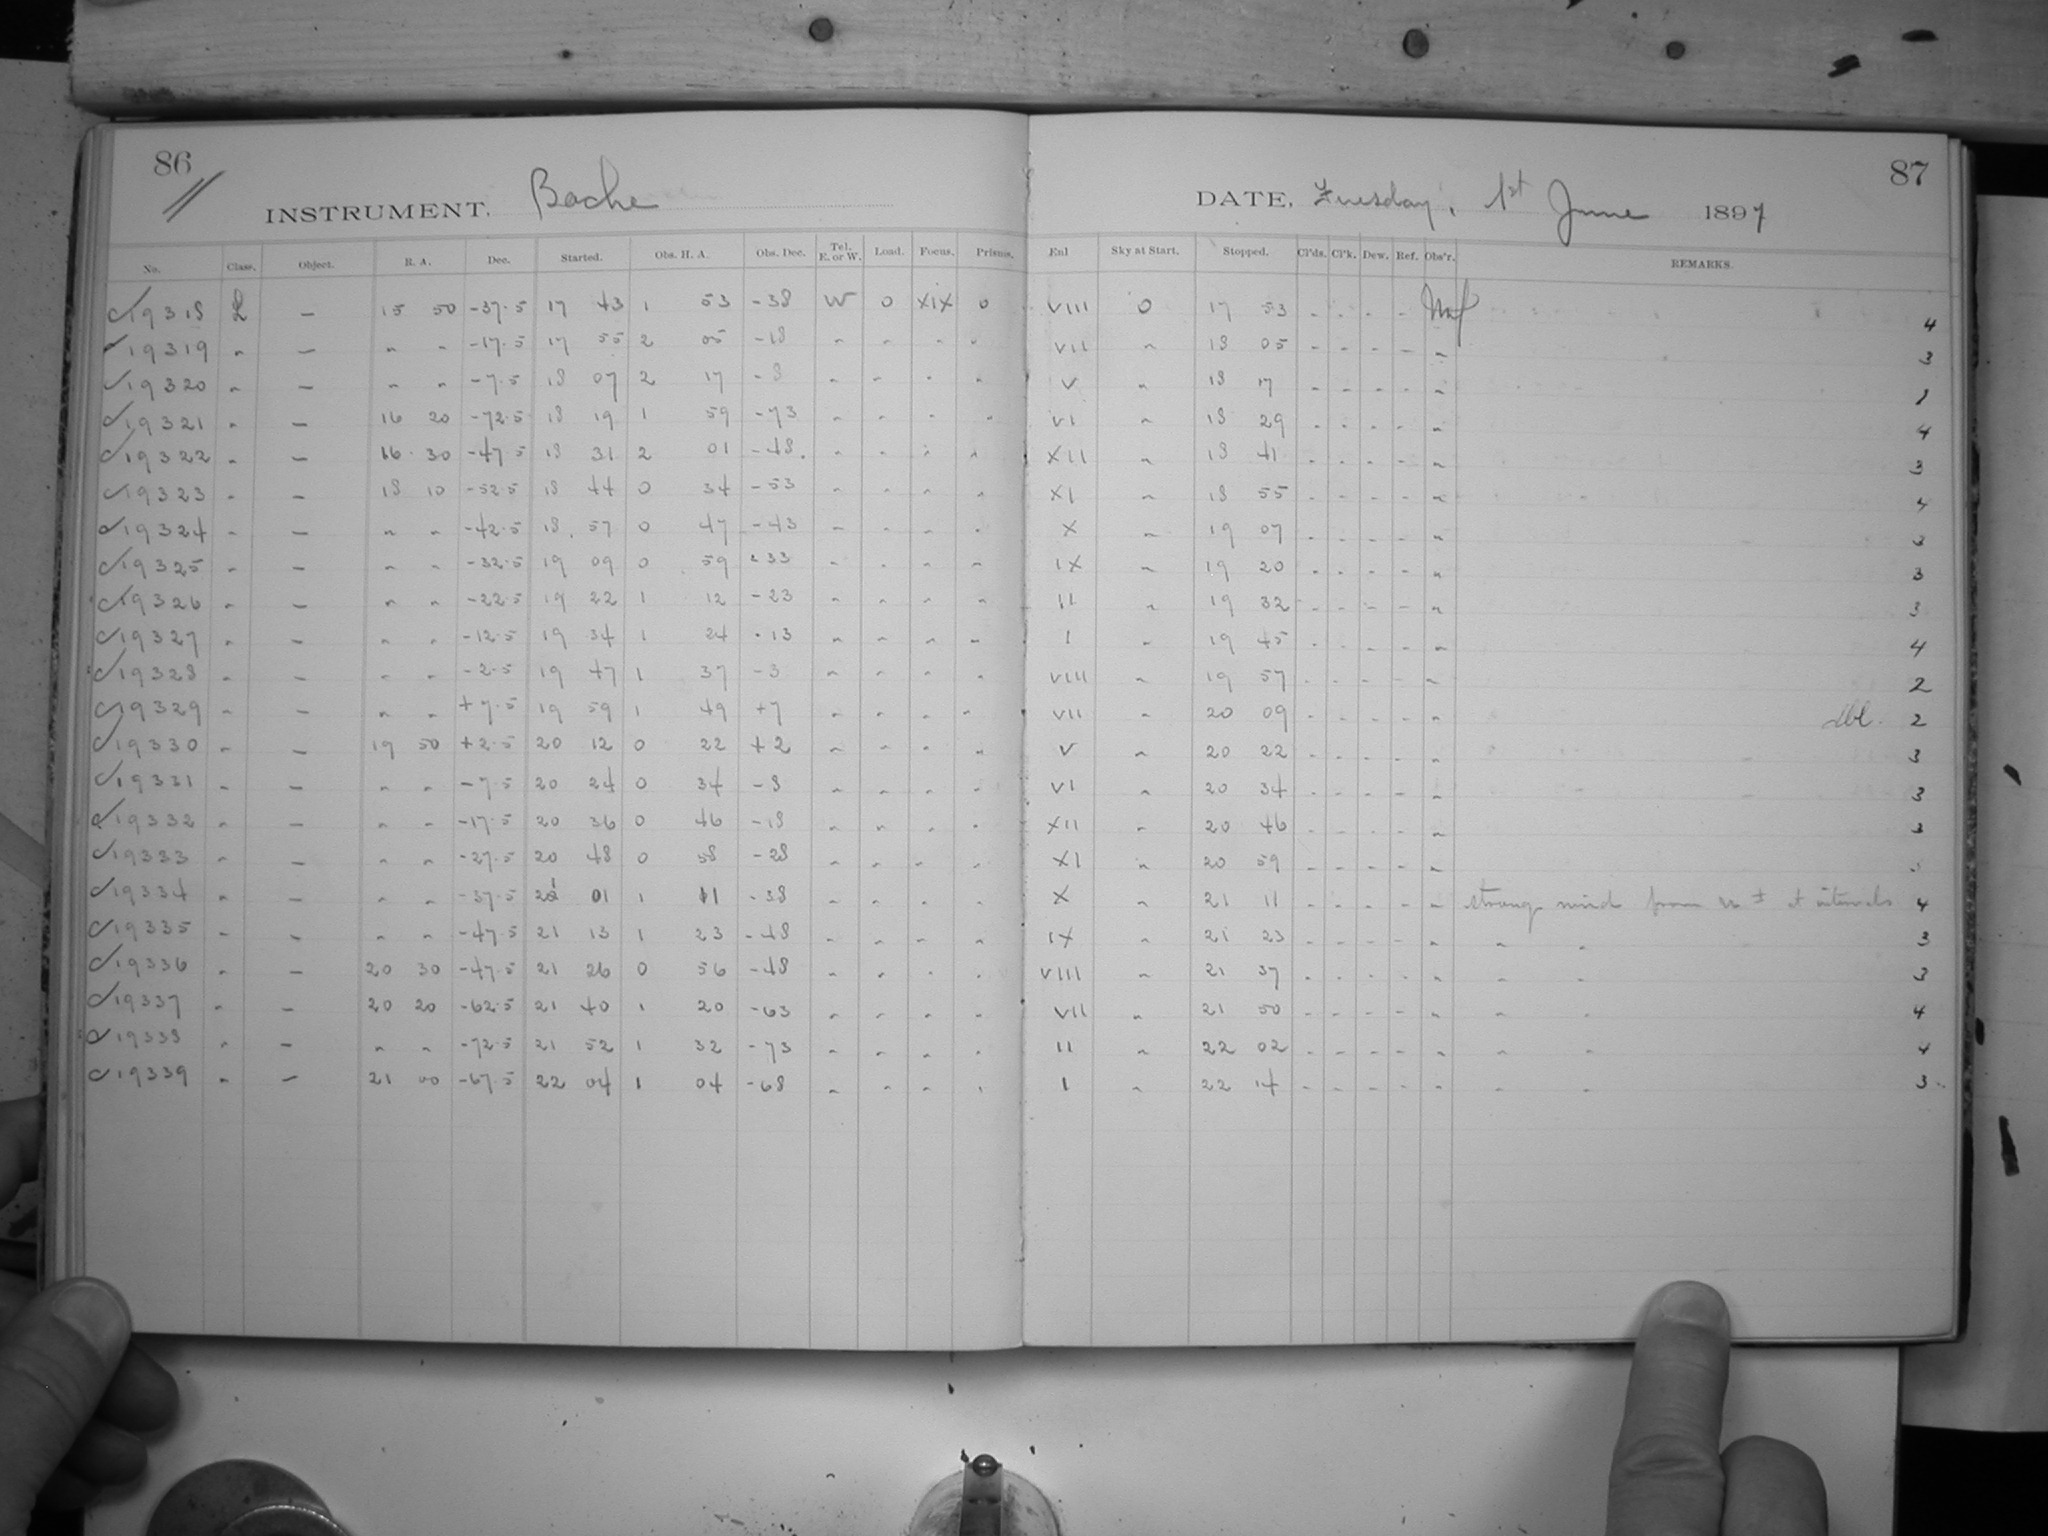 86
87
INSTRUMENT. Bache
DATE, Tuesday, 1st June 1897
No. Class. Object. R. A. Dec. Started. Obs. H. A. Obs. Dec. Tel. E. or W. Load. Focus. Prisms. Enl Sky at Start. Stopped. Cl'ds. Cl'k. Dew. Ref. Obs'r. REMARKS.
19318 L — 15 50 -37.5 17 43 1 53 -38 W 0 XIX 0 VIII 0 17 53 - - - - 4
19319 " — " " -17.5 17 55 2 05 -18 " " " " VII " 18 05 - - - - " 3
19320 " — " " -7.5 18 07 2 17 -8 " " " " V " 18 17 - - - - "
19321 " — 16 20 -72.5 18 19 1 59 -73 " " " " VI " 18 29 - - - - " 4
19322 " — 16 30 -47.5 18 31 2 01 -48 " " " " XII " 18 41 - - - - " 3
19323 " — 18 10 -52.5 18 44 0 34 -53 " " " " XI " 18 55 - - - - " 4
19324 " — " " -42.5 18 57 0 47 -43 " " " " X " 19 07 - - - - " 3
19325 " — " " -32.5 19 09 0 59 -33 " " " " IX " 19 20 - - - - " 3
19326 " — " " -22.5 19 22 1 12 -23 " " " " II " 19 32 - - - - " 3
19327 " — " " -12.5 19 34 1 24 -13 " " " " I " 19 45 - - - - " 4
19328 " — " " -2.5 19 47 1 37 -3 " " " " VIII " 19 57 - - - - " 2
19329 " — " " +7.5 19 59 1 49 +7 " " " " VII " 20 09 - - - - " dbl. 2
19330 " — 19 50 +2.5 20 12 0 22 +2 " " " " V " 20 22 - - - - " 3
19331 " — " " -7.5 20 24 0 34 -8 " " " " VI " 20 34 - - - - " 3
19332 " — " " -17.5 20 36 0 46 -18 " " " " XII " 20 46 - - - - " 3
19333 " — " " -27.5 20 48 0 58 -28 " " " " XI " 20 59 - - - - "
19334 " — " " -37.5 21 01 1 11 -38 " " " " X " 21 11 - - - - " strong wind from at intervals 4
19335 " — " " -47.5 21 13 1 23 -48 " " " " IX " 21 23 - - - - " " " 3
19336 " — 20 30 -47.5 21 26 0 56 -48 " " " " VIII " 21 37 - - - - " " " 3
19337 " — 20 20 -62.5 21 40 1 20 -63 " " " " VII " 21 50 - - - - " " " 4
19338 " — " " -72.5 21 52 1 32 -73 " " " " II " 22 02 - - - - " " " 4
19339 " — 21 00 -67.5 22 04 1 04 -68 " " " " I " 22 14 - - - - " " " 3